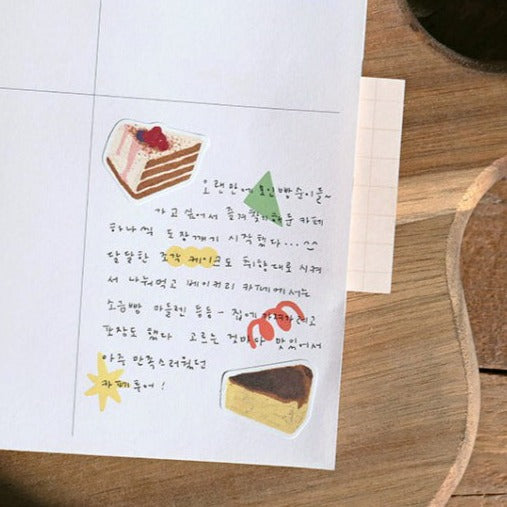 오랜만에 모인 빵순이들~
가고 싶어서 즐겨찾기해둔 카페
하나씩 도장깨기 시작했다... ^^
달달한 조각 케이크도 취향대로 시켜
서 나눠먹고 베이커리 카페에서는
소금빵 마들렌 등등~ 집에 가져가려고
포장도 했다 고르는 것마다 맛있어서
아주 만족스러웠던
카페투어!